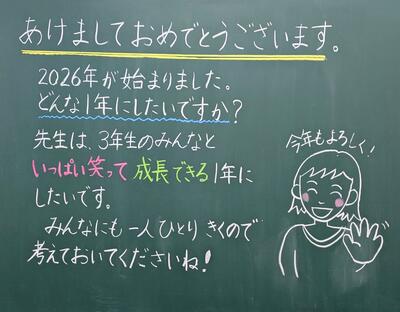 あけましておめでとうございます。
2026年が始まりました。
どんな1年にしたいですか?
先生は、3年生のみんなと
いっぱい笑って成長できる1年に
したいです。
みんなにも一人ひとりきくので
考えておいてくださいね!
今年もよろしく!